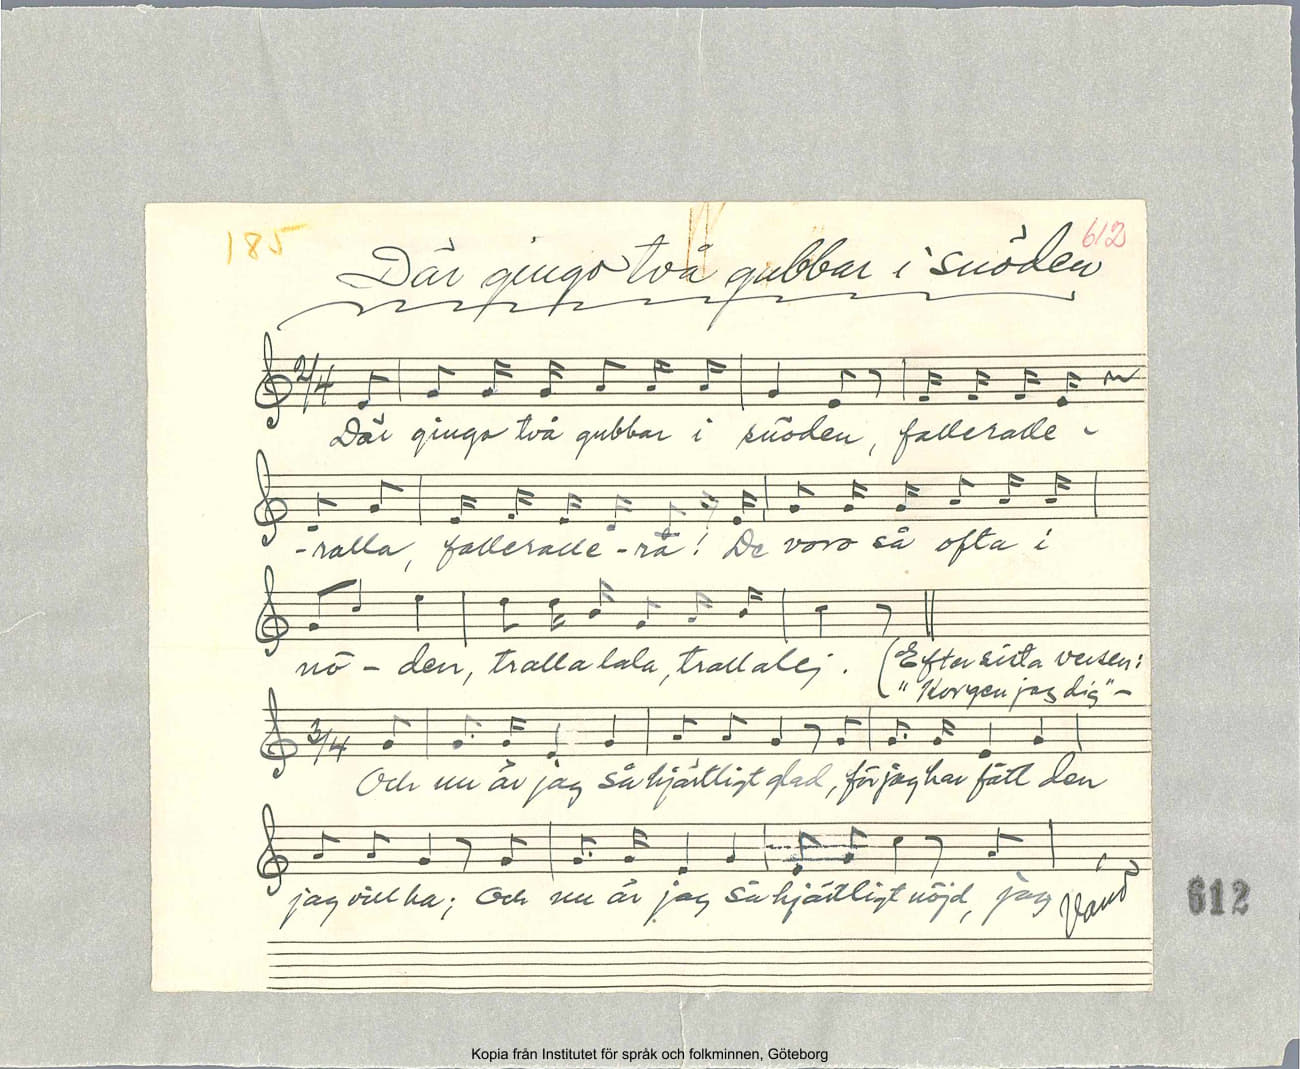 185
612
Där gingo två gubbar i snöden
2/4
Där gingo två gubbar i snöden, falleralle -
-ralla, falleralle-rà! De voro så ofta i
nö - den, trallalala, trallalej. (Efter sista versen:
"Korgen jag dig" -
3/4
Och nu är jag så hjärtligt glad, för jag har fått den
jag vill ha; och nu är jag så hjärtligt nöjd, jag
Vänd
612
Kopia från Institutet för språk och folkminnen, Göteborg